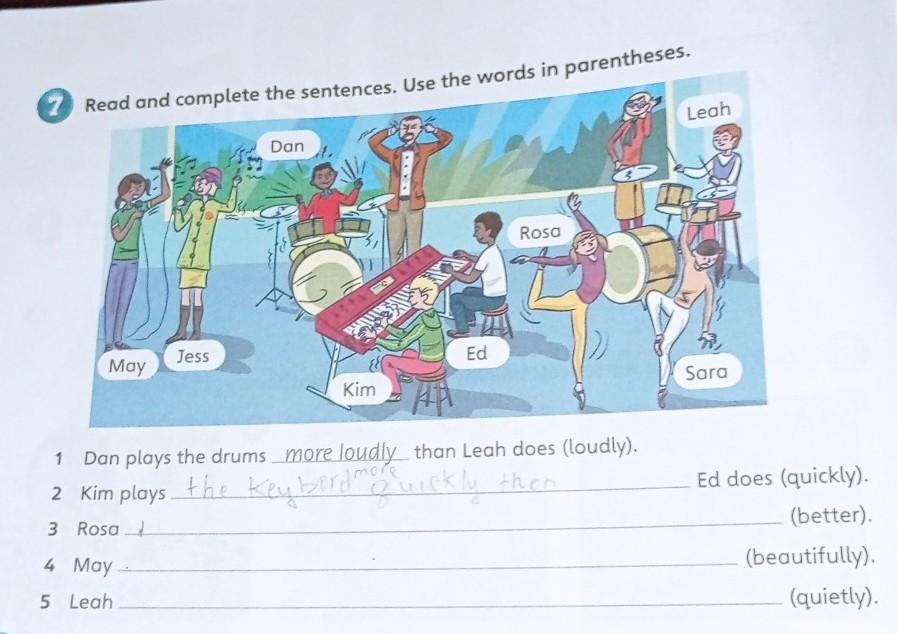 7 Read and complete the sentences. Use the words in parentheses.
Leah
Dan
Rosa
May
Jess
Ed
Kim
Sara
1 Dan plays the drums more loudly than Leah does (loudly).
2 Kim plays the keybord more quickly then Ed does (quickly).
3 Rosa (better).
4 May (beautifully).
5 Leah (quietly).